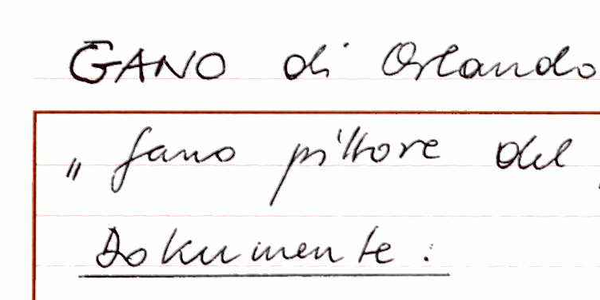 GANO di Orlando
„ Gano pittore del
Dokumente :